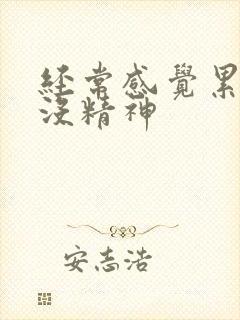 經常感覺累
沒精神
安志浩